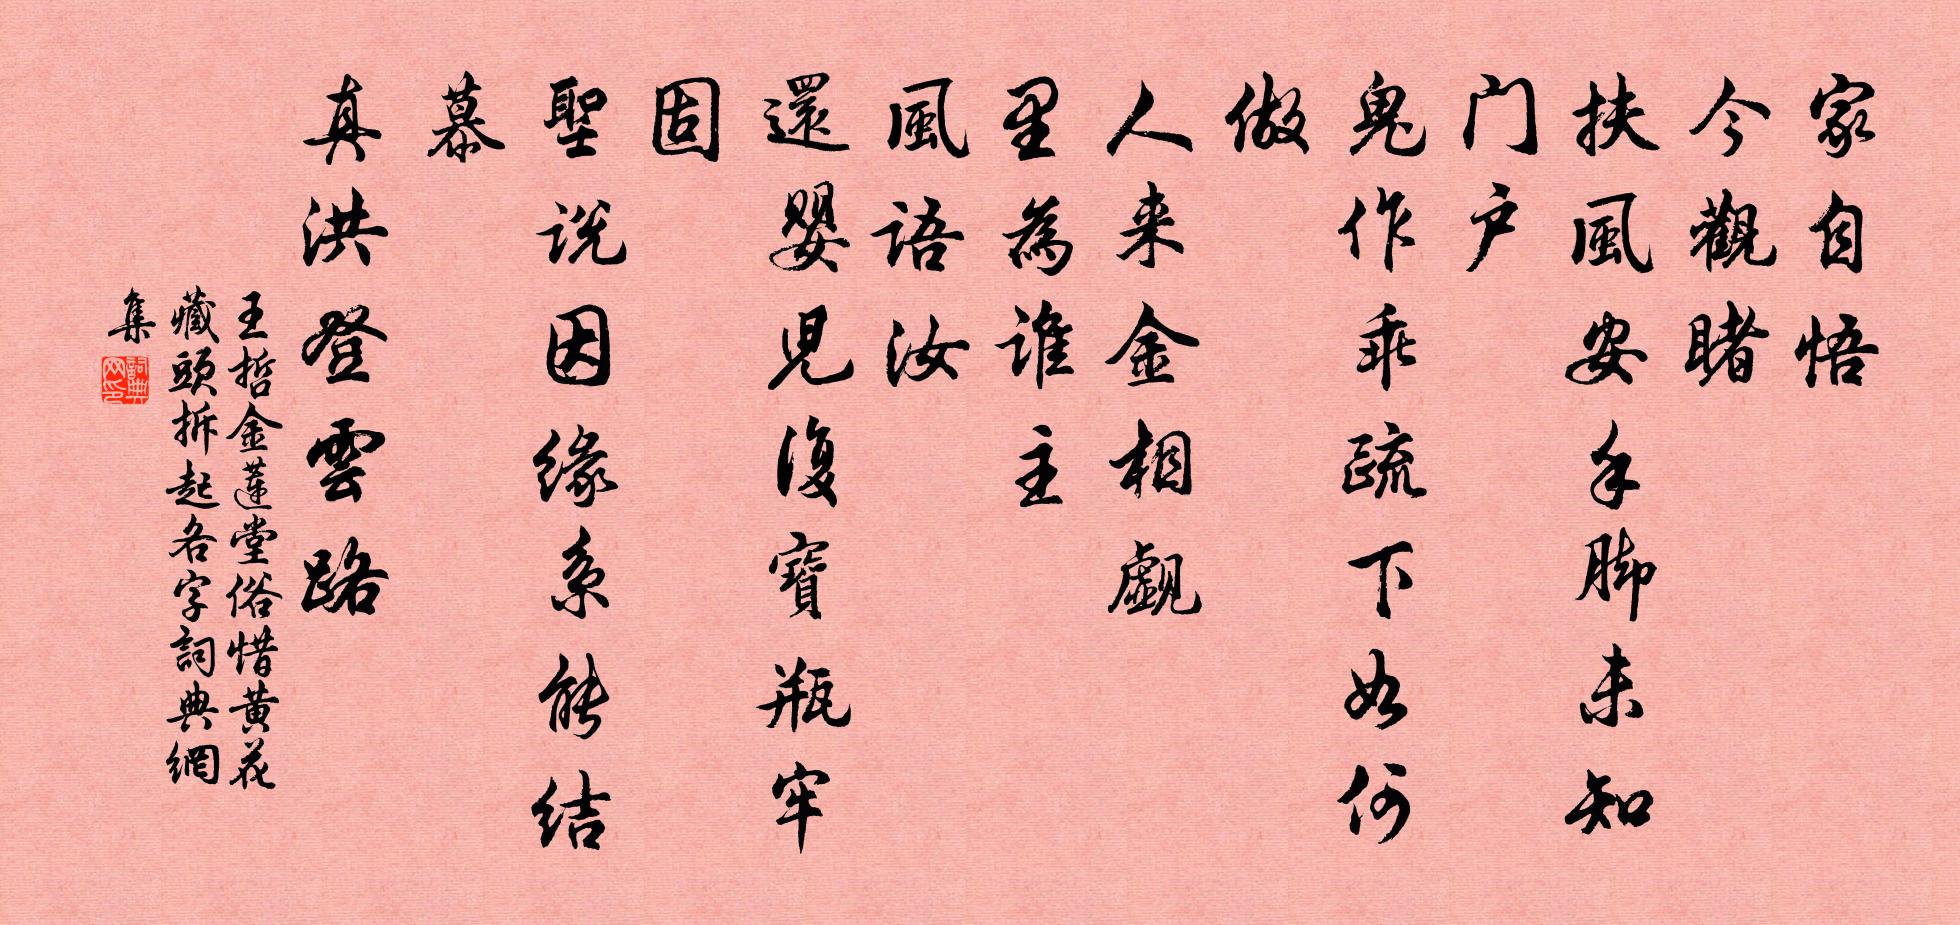 家自悟
今觀睹
扶風安手脚未知
门户
鬼作乖疏下如何
做
人来金相覷
里為谁主
風語汝
還嬰児復寶瓶牢
固
聖说因缘系能结
慕
真洪登雲路
王哲金蓮堂俗惜黄花
藏頭拆起各字詞典網
集
詞典网印